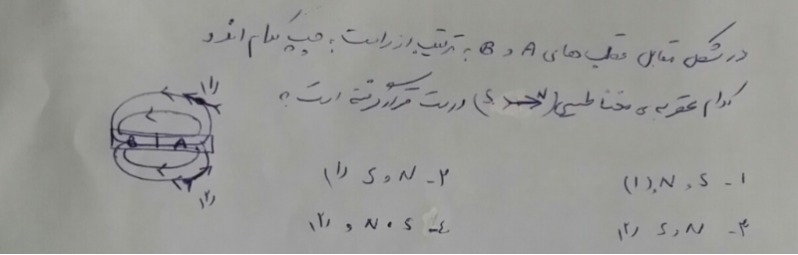 در شکل مقابل قطب های A و B به ترتیب از راست به چپ کدام اند و
کدام عقربه ی مغناطیسی (S → N) درست قرار گرفته است؟
(۱)
B A
(۲)
۱- S و N، (۱)
۲- N و S (۱)
۳- N و S (۲)
۴- S و N، (۲)